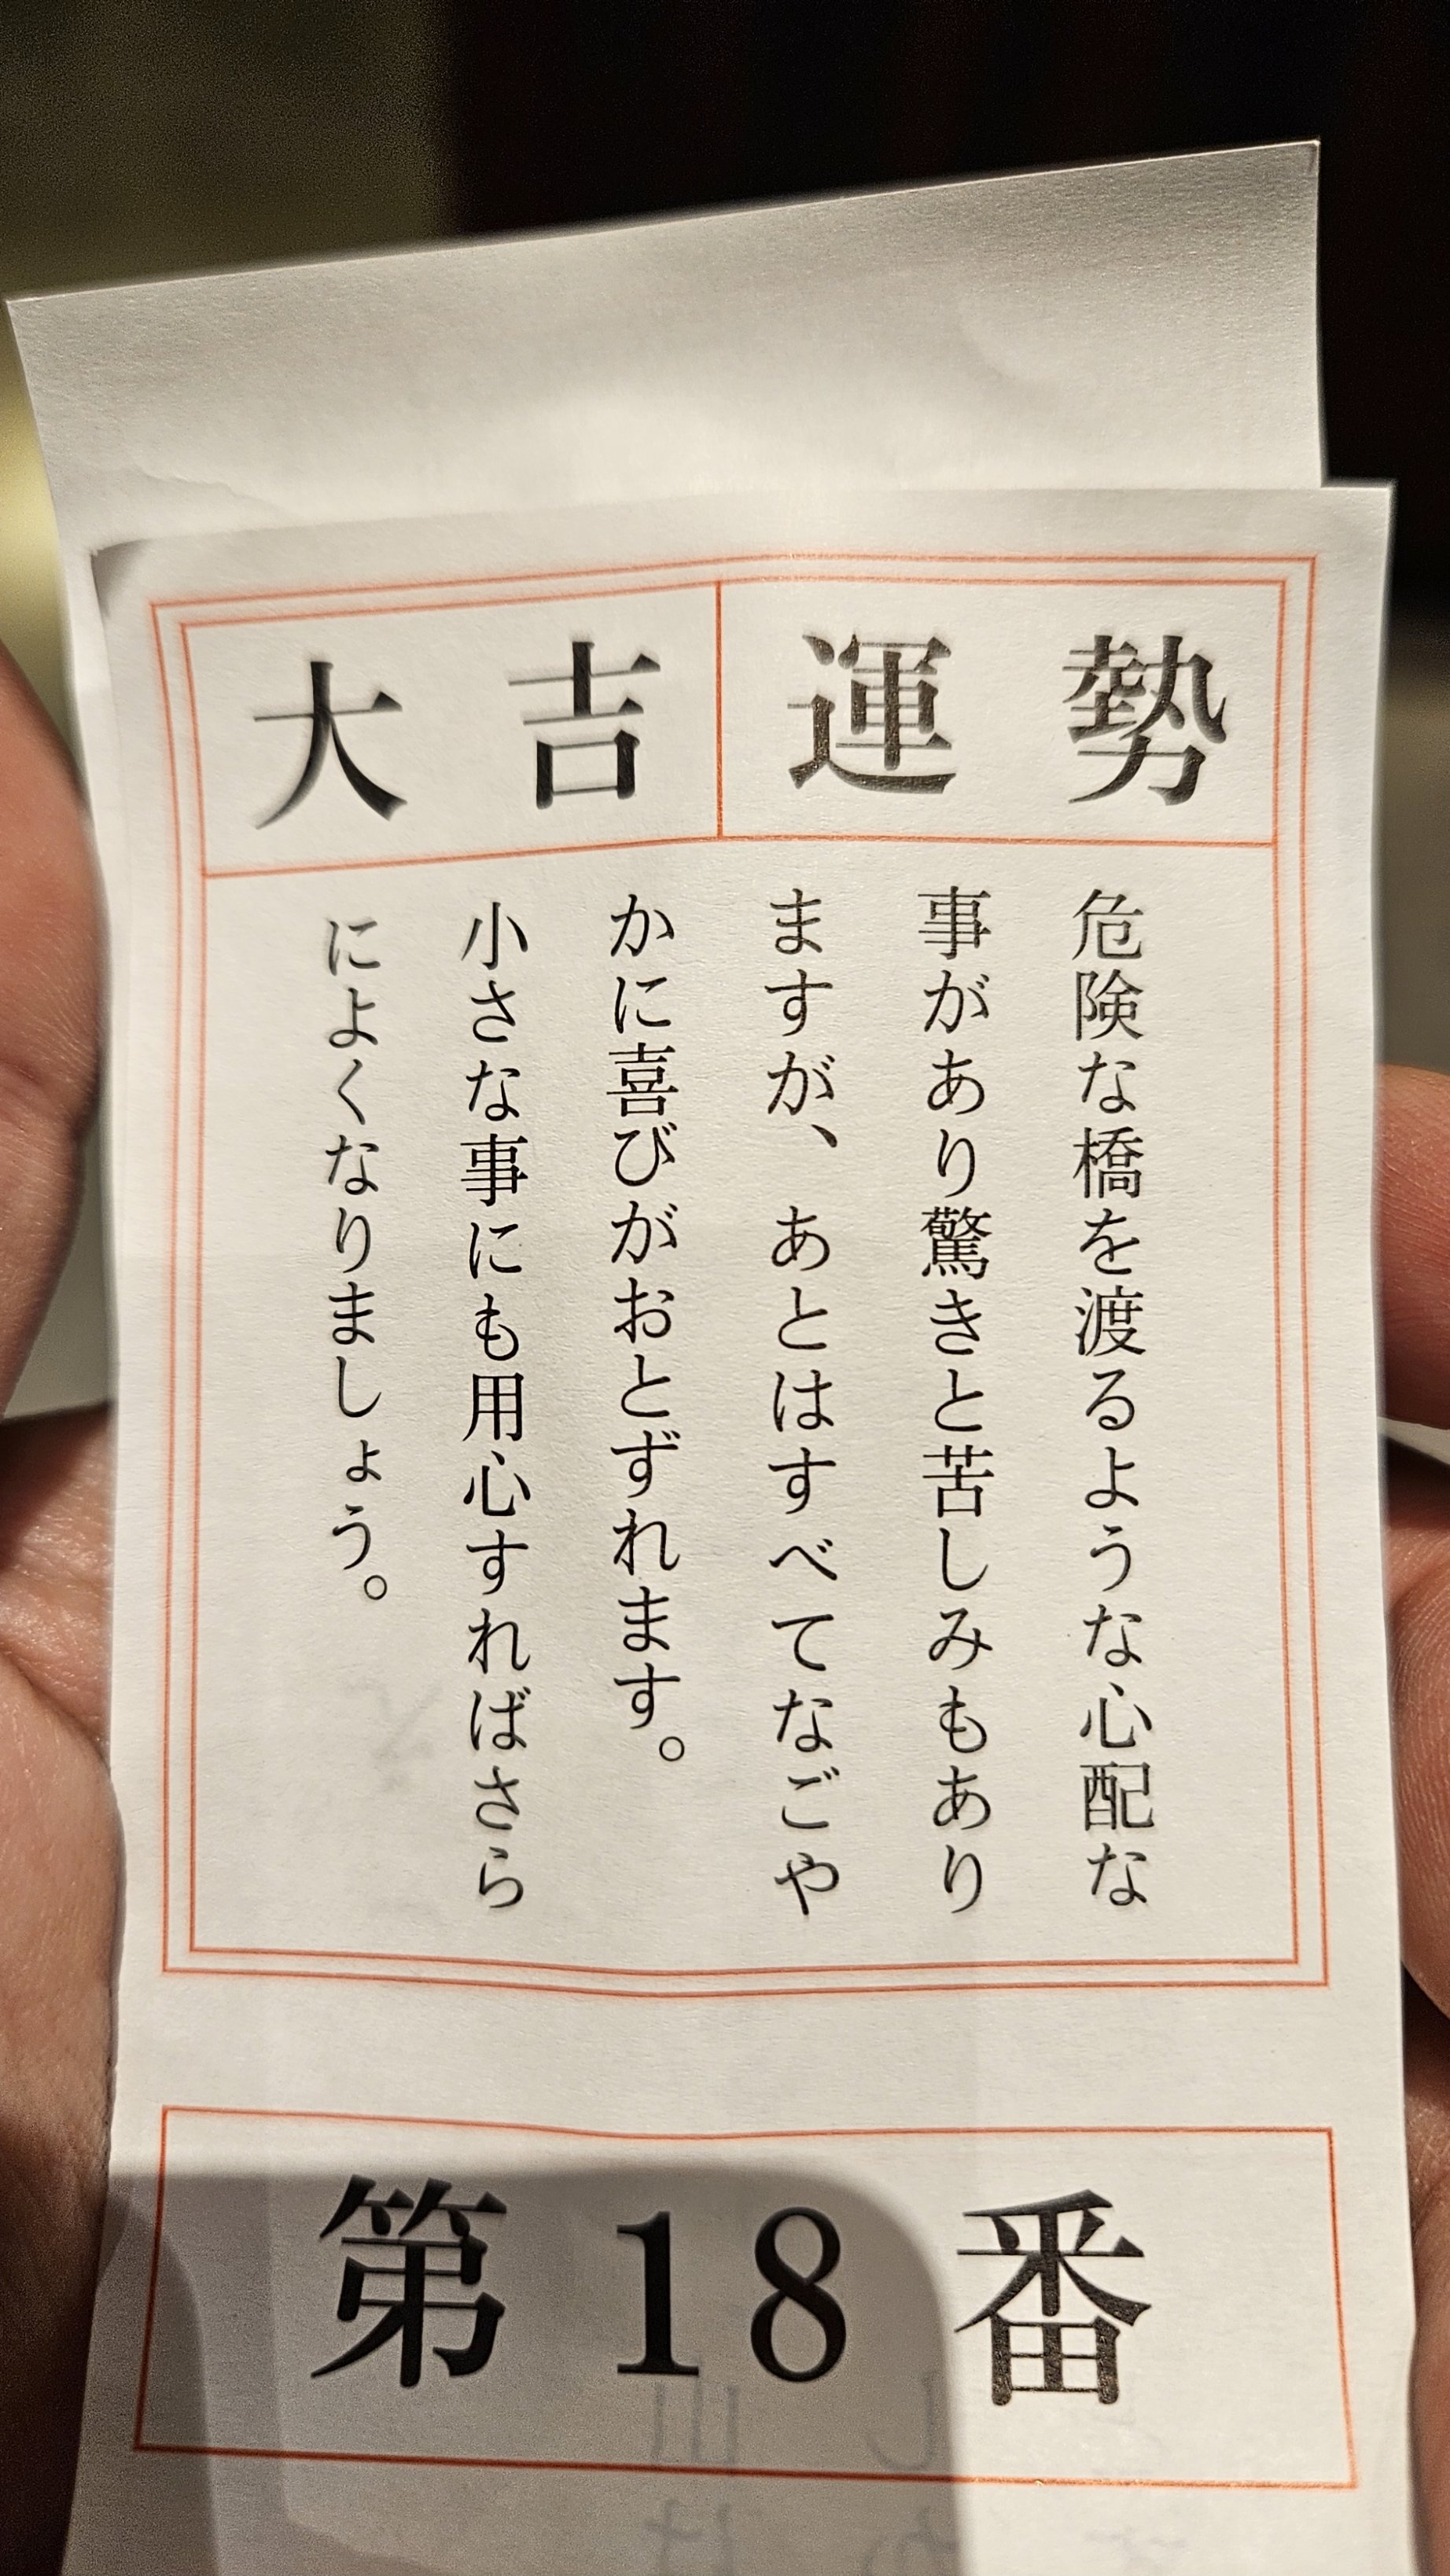 大吉 運勢
危険な橋を渡るような心配な
事があり驚きと苦しみもあり
ますが、あとはすべてなごや
かに喜びがおとずれます。
小さな事にも用心すればさら
によくなりましょう。
第18番